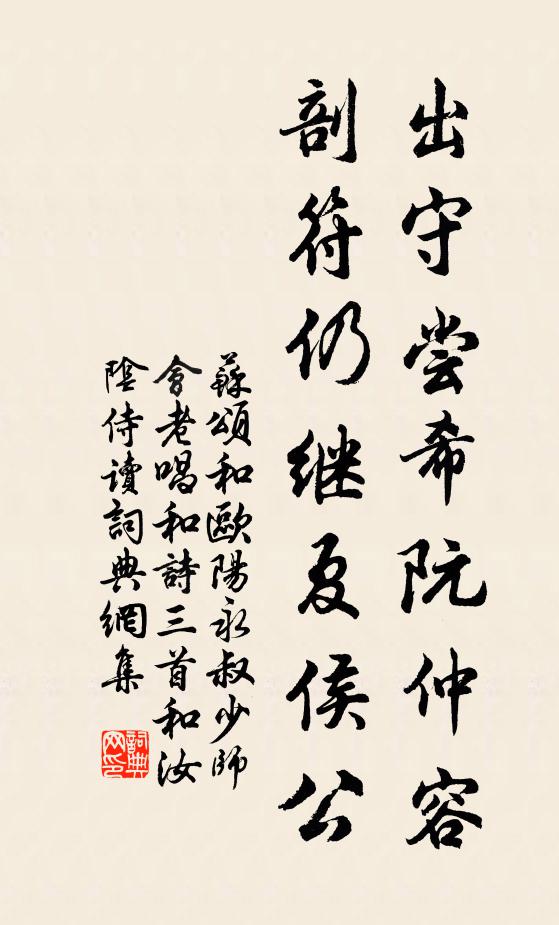 出守尝希阮仲容
剖符仍继夏侯公
蘇頌和歐陽永叔少師
會老唱和詩三首和汝
陰侍讀詞典網集
詞典网印